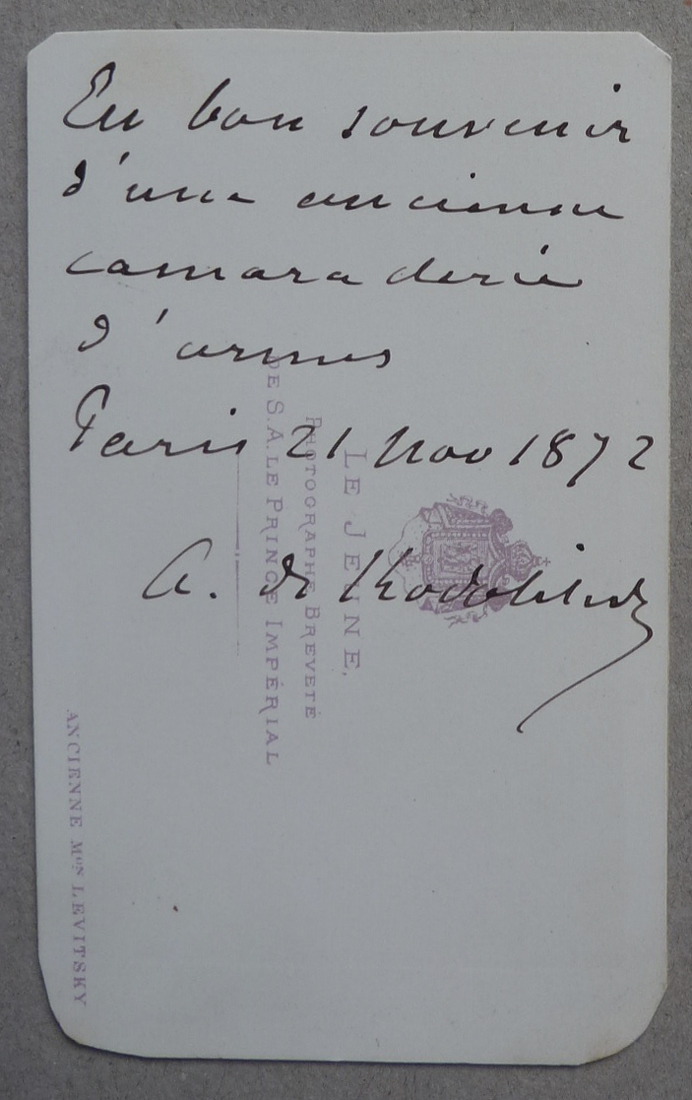 En bon souvenir
d'une ancienne
camaraderie
d'armes
Paris 21 Nov 1872
A. de
LE JEUNE,
PHOTOGRAPHE BREVETÉ
DE S.A. LE PRINCE IMPÉRIAL
ANCIENNE MON LEVITSKY